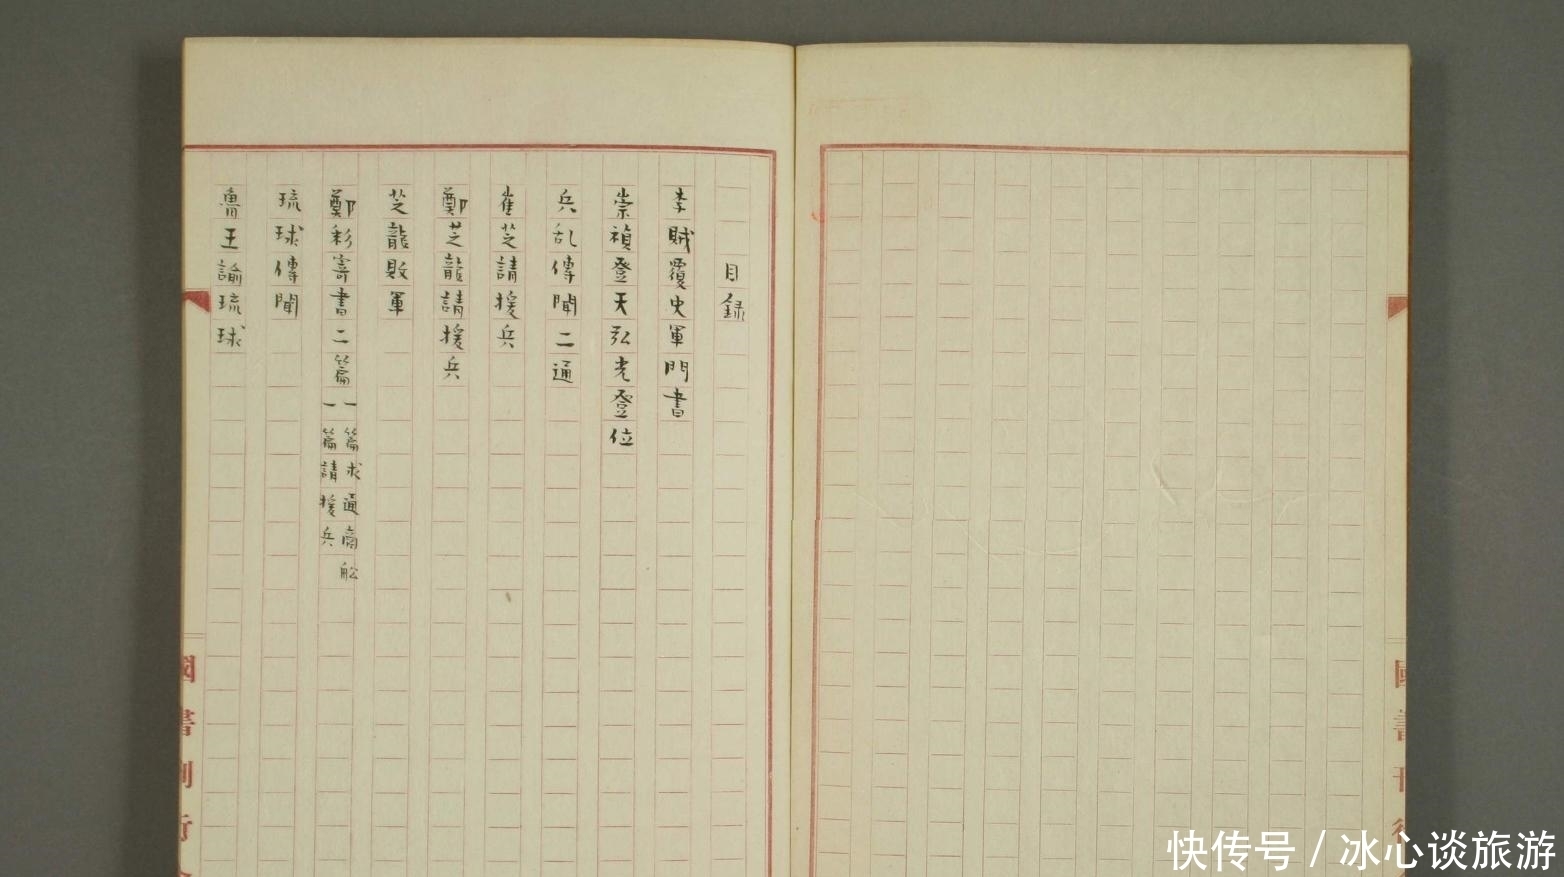 目録
李賊覆史軍門書
崇禎登天弘光登位
兵乱傳聞二通
崔芝請援兵
鄭芝龍請援兵
芝龍敗軍
鄭彩寄書二篇
一篇求通商舩
一篇請援兵
琉球傳聞
魯王諭琉球
國書刊行
國書刊行
快传号 / 冰心谈旅游